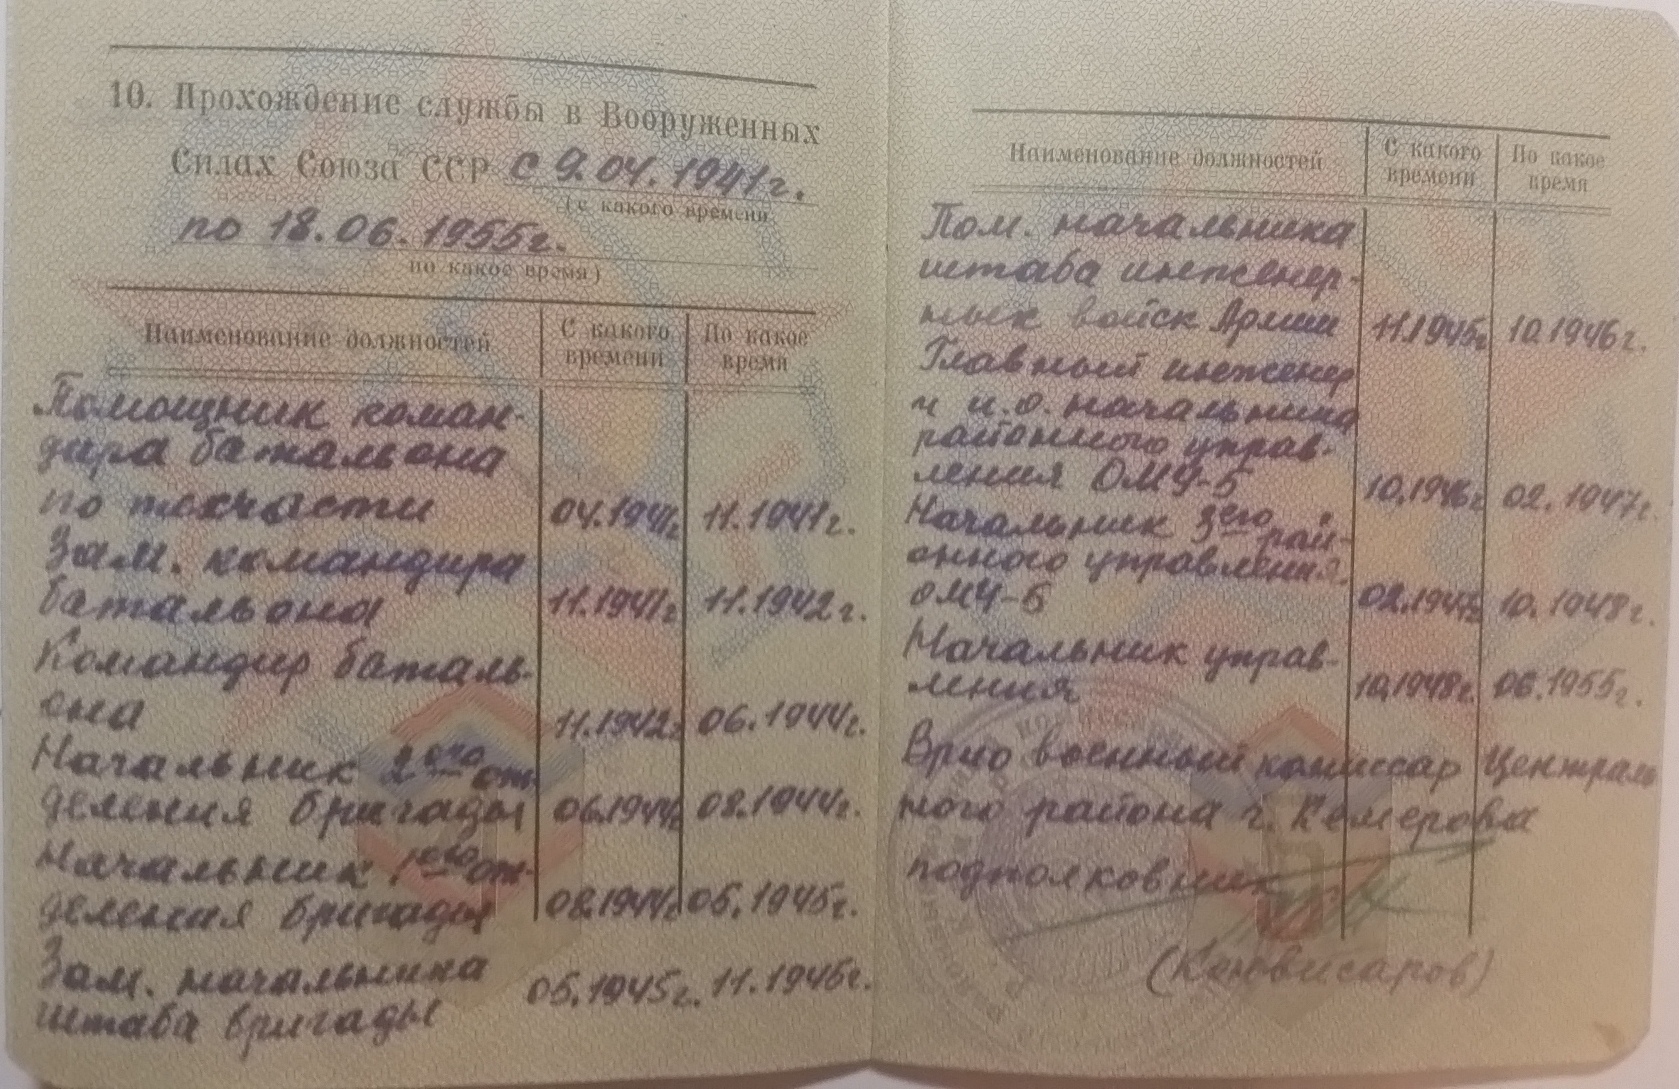 10. Прохождение службы в Вооруженных
Силах Союза ССР с 9.04.1941г.
(с какого времени
по 18.06.1955г.
по какое время)
Наименование должностей С какого времени По какое время
Помощник коман-
дира батальона
по техчасти 04.1941г. 11.1941г.
Зам. командира
батальона 11.1941г. 11.1942г.
Командир баталь-
она 11.1942г. 06.1944г.
Начальник 2его от-
деления бригады 06.1944г. 08.1944г.
Начальник 1его от-
деления бригады 08.1944г. 05.1945г.
Зам. начальника
штаба бригады 05.1945г. 11.1945г.
Наименование должностей С какого времени По какое время
Пом. начальника
штаба инженер-
ных войск Армии 11.1945г. 10.1946г.
Главный инженер
и и.о. начальника
районного управ-
ления ОМУ-5 10.1946г. 02.1947г.
Начальник 3его рай-
онного управления
ОМУ-5 02.1947г. 10.1948г.
Начальник управ-
ления 10.1948г. 06.1955г.
Врио военный комиссар Централь
ного района г. Кемерова
подполковник